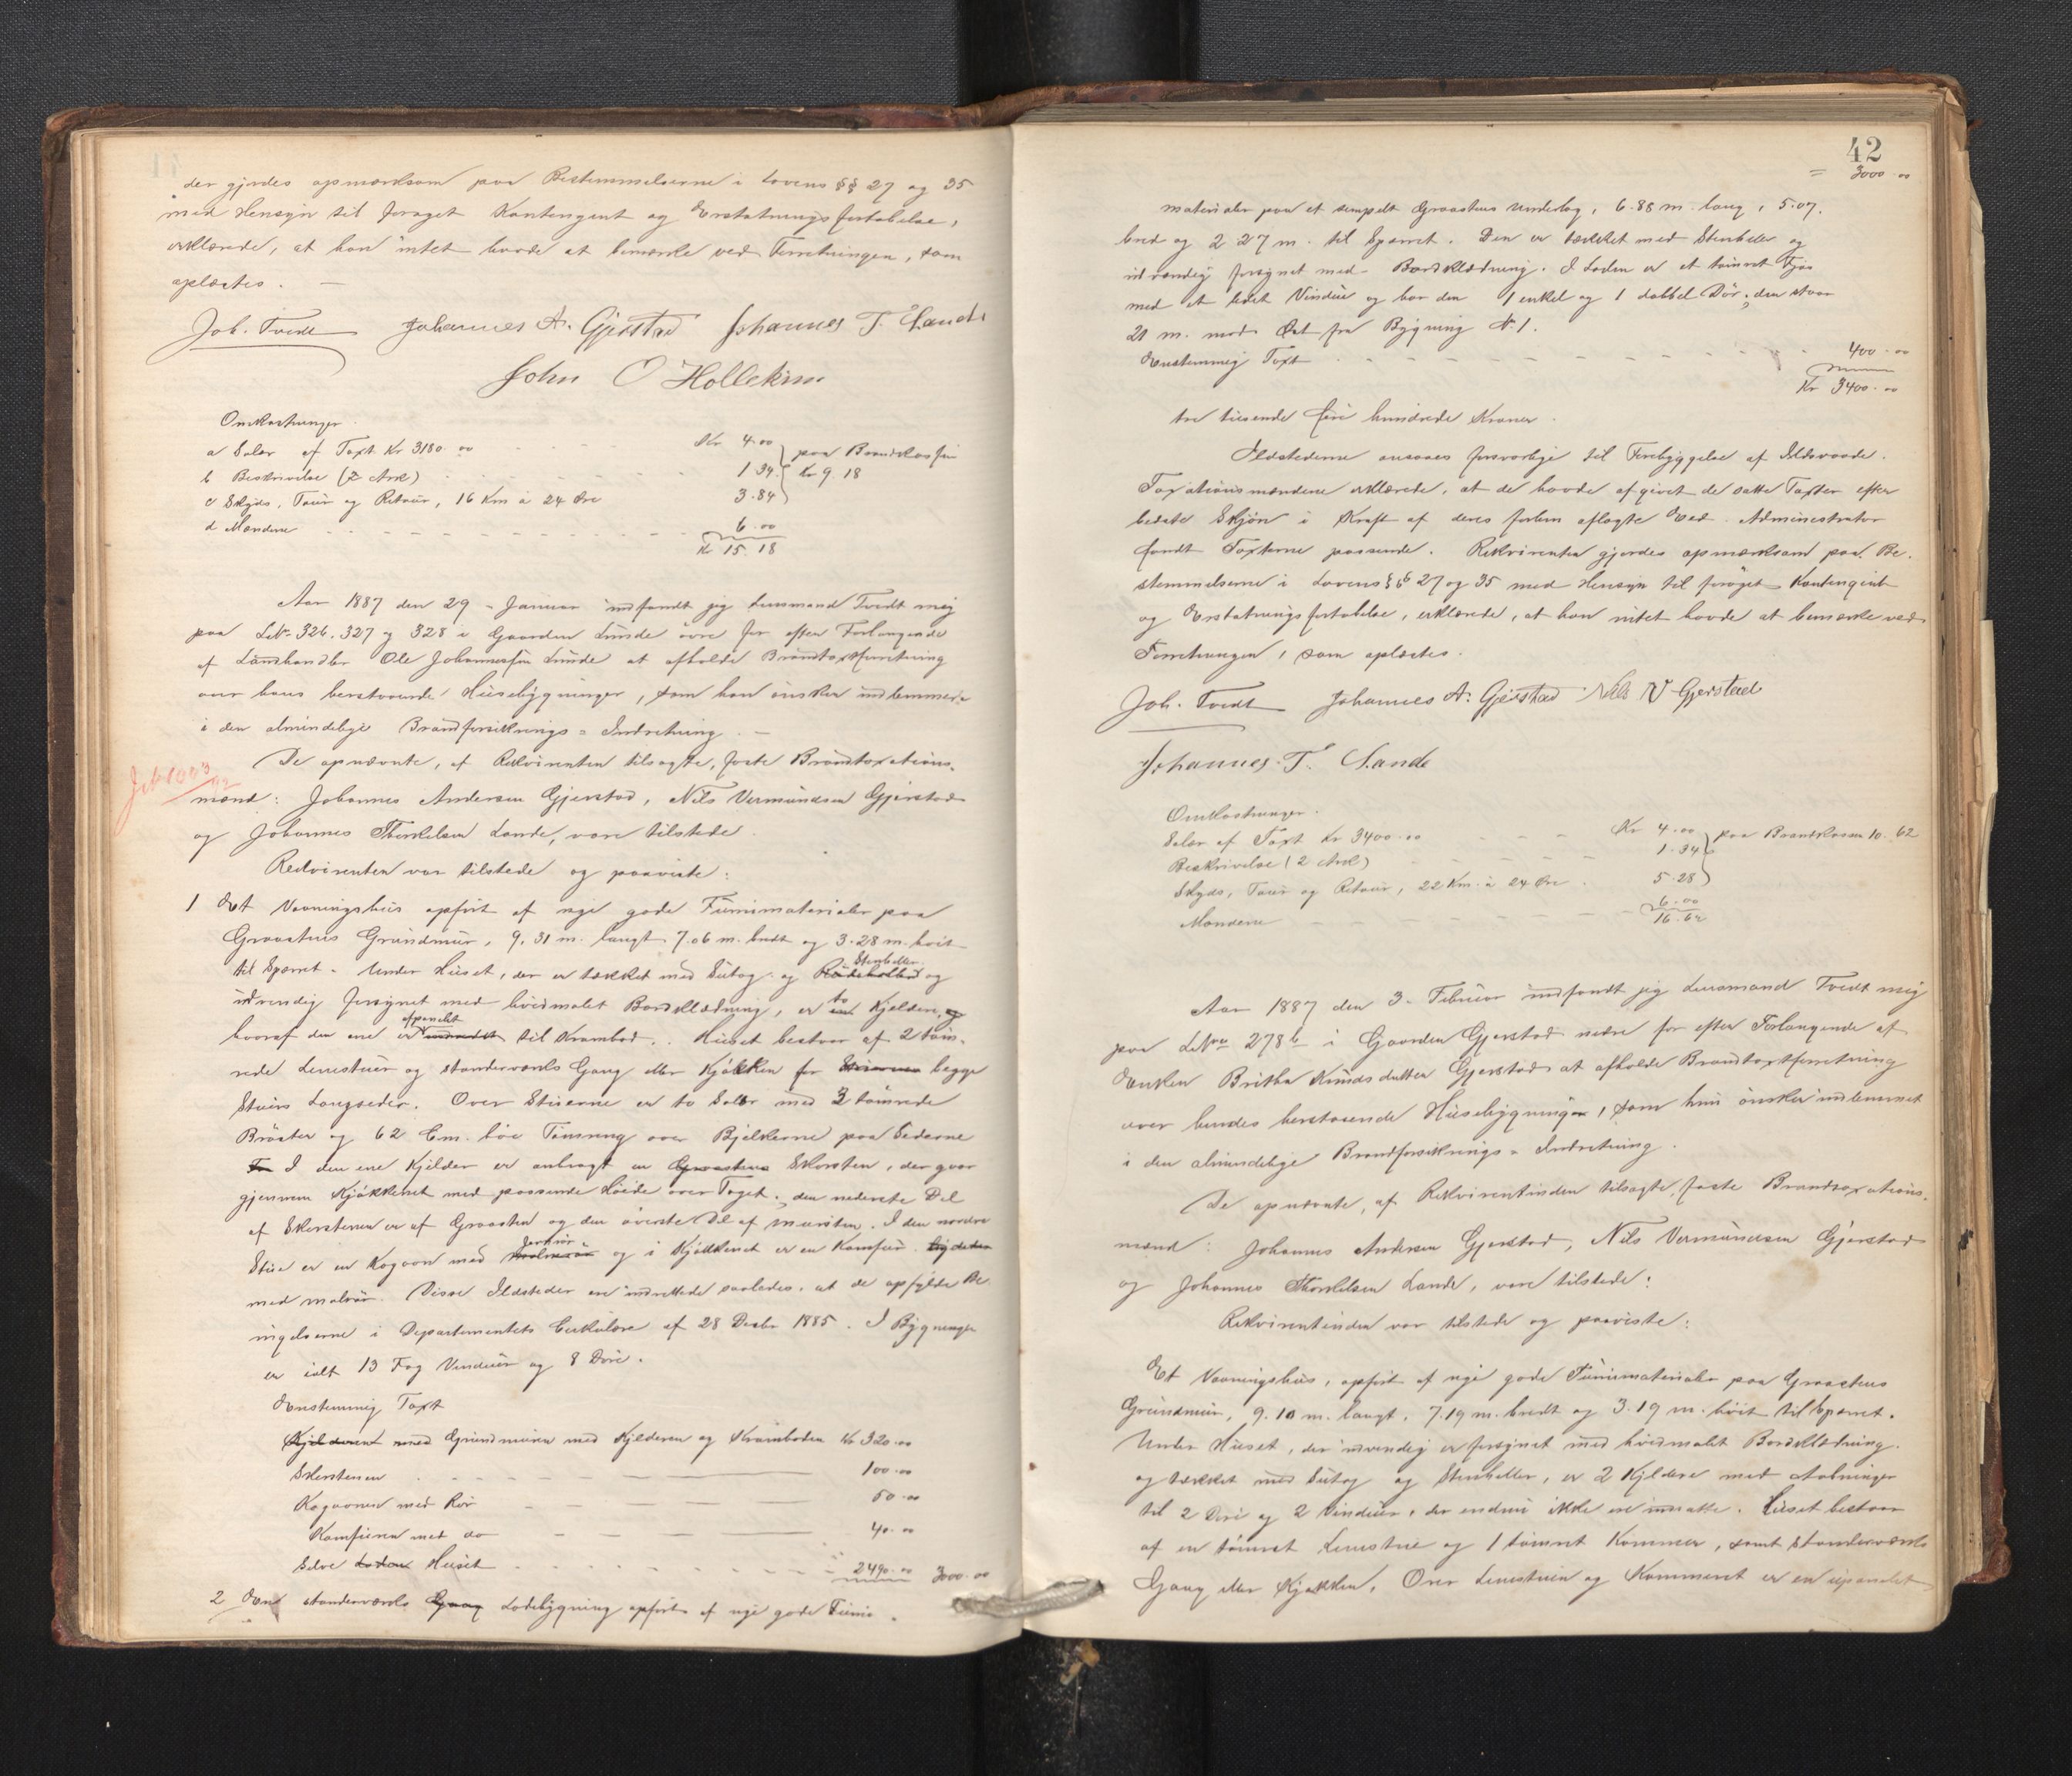 der gjordes opmærksom paa Bestemmelserne i Lovens §§ 27 og 35
med Hensyn til forøget Kontingent og Erstatningsfortabelse,
erklærede, at han intet havde at bemærke ved Forretningen, som
oplæstes. —
Joh. Tvedt Johannes A. Gjerstad Johannes T. Lande
John O Hollekim
Omkostninger.
a Salær af Taxt Kr 3180.00 Kr 4.00
b Beskrivelse (2 Ark) 1.34 paa Brandkassen
c Skyds, Tour og Retour, 16 Km à 24 Øre 3.84 Kr 9.18
d Mændene 6.00
Kr 15.18
Aar 1887 den 29 Januar indfandt jeg Lensmand Tvedt mig
paa LNr. 326. 327 og 328 i Gaarden Lunde øvre for efter Forlangende
af Landhandler Ole Johannessen Lunde at afholde Brandtaxtforretning
over hans herstaaende Husebygninger, som han ønsker indlemmede
i den almindelige Brandforsikrings = Indretning. —
De opnævnte, af Rekvirenten tilsagte, faste Brandtaxations-
mænd: Johannes Andersen Gjerstad, Nils Vermundsen Gjerstad
og Johannes Thorkelsen Lande, vare tilstede.
Rekvirenten var tilstede og paaviste:
1 Et Vaaningshus opført af nye gode Furumaterialer paa
Graastens Grundmur, 9.31 m. langt, 7.06 m. bredt og 3.28 m. høit
til Spærret. Under Huset, der er tækket med Sutag og Stenheller og
udvendig forsynet med hvidmalet Bordklædning, er to Kjeldere,
hvoraf den ene er afpanelet til Krambod. Huset bestaar af 2 tøm-
rede Lemstuer og standerværks Gang eller Kjøkken for begge
Stuers Langsider. Over Stuerne er to Saler med 3 tømrede
Brøster og 62 Cm. høi Tømring over Bjelkerne paa Siderne
I den ene Kjelder er anbragt en Skorsten, der gaar
gjennem Kjøkkenet med passende Høide over Taget, den nederste Del
af Skorstenen er af Graasten og den øverste Del af Mursten. I den nordre
Stue er en Kogovn med Jernrør og i Kjøkkenet er en Komfur
med malrør. Disse Ildsteder ere indrettede saaledes, at de opfylde Be-
ingelserne i Departementets Cirkulære af 28 Decbr 1885. I Bygningen
er ialt 13 Fag Vinduer og 8 Døre.
Enstemmig Taxt
Grundmuren med Kjelderen og Kramboden Kr 320.00
Skorstenen 100.00
Kogovnen med Rør 50.00
Komfuren med do 40.00
Selve Huset 2490.00 3000.00
2 En standerværks Ladebygning opført af nye gode Furu-
42
= 3000.00
materialer paa et simpelt Graastens Underlag, 6.88 m. lang, 5.07.
bred og 2.27 m. til Spærret. Den er tækket med Stenheller og
udvendig forsynet med Bordklædning. I Laden er et tømret Fjøs
med et lidet Vindu og har den 1 enkel og 1 dobbel Dør; den staar
21 m. mod Øst fra Bygning N. 1.
Enstemmig Taxt 400.00
Kr 3400.00
tre tusende fire hundrede Kroner.
Ildstederne ansaaes forsvarlige til Forebyggelse af Ildsvaade.
Taxationsmændene erklærede, at de havde afgivet de satte Taxter efter
bedste Skjøn i Kraft af deres forhen aflagte Ed. Administrator
fandt Taxterne passende. Rekvirenten gjordes opmærksom paa Be-
stemmelserne i Lovens §§ 27 og 35 med Hensyn til forøget Kontingent
og Erstatningsfortabelse, erklærede, at han intet havde at bemærke ved
Forretningen, som oplæstes.
Joh. Tvedt Johannes A. Gjerstad Nils V Gjerstad
Johannes T. Lande
Omkostninger.
Salær af Taxt Kr 3400.00 Kr 4.00 paa Brandkassen 10.62
Beskrivelse (2 Ark) 1.34
Skyds, Tour og Retour, 22 Km. à 24 Øre. 5.28
Mændene 6.00
16.62
Aar 1887 den 3. Februar indfandt jeg Lensmand Tvedt mig
paa LNr 278 b i Gaarden Gjerstad nedre for efter Forlangende af
Enken Britha Knudsdatter Gjerstad at afholde Brandtaxtforretning
over hendes herstaaende Husebygning, som hun ønsker indlemmet
i den almindelige Brandforsikrings = Indretning.
De opnævnte, af Rekvirentinden tilsagte, faste Brandtaxations-
mænd: Johannes Andersen Gjerstad, Nils Vermundsen Gjerstad
og Johannes Thorkelsen Lande, vare tilstede:
Rekvirentinden var tilstede og paaviste:
Et Vaaningshus, opført af nye gode Furumaterialer paa Graastens
Grundmur, 9.10 m. langt, 7.19 m. bredt og 3.19 m. høit til Spærret.
Under Huset, der udvendig er forsynet med hvidmalet Bordklædning,
og tækket med Sutag og Stenheller, er 2 Kjeldere med Aabninger
til 2 Døre og 2 Vinduer, der endnu ikke ere indsatte. Huset bestaar
af en tømret Lemstue og 1 tømret Kammer, samt standerværks
Gang eller Kjøkken. Over Lemstuen og Kammeret er en upanelet